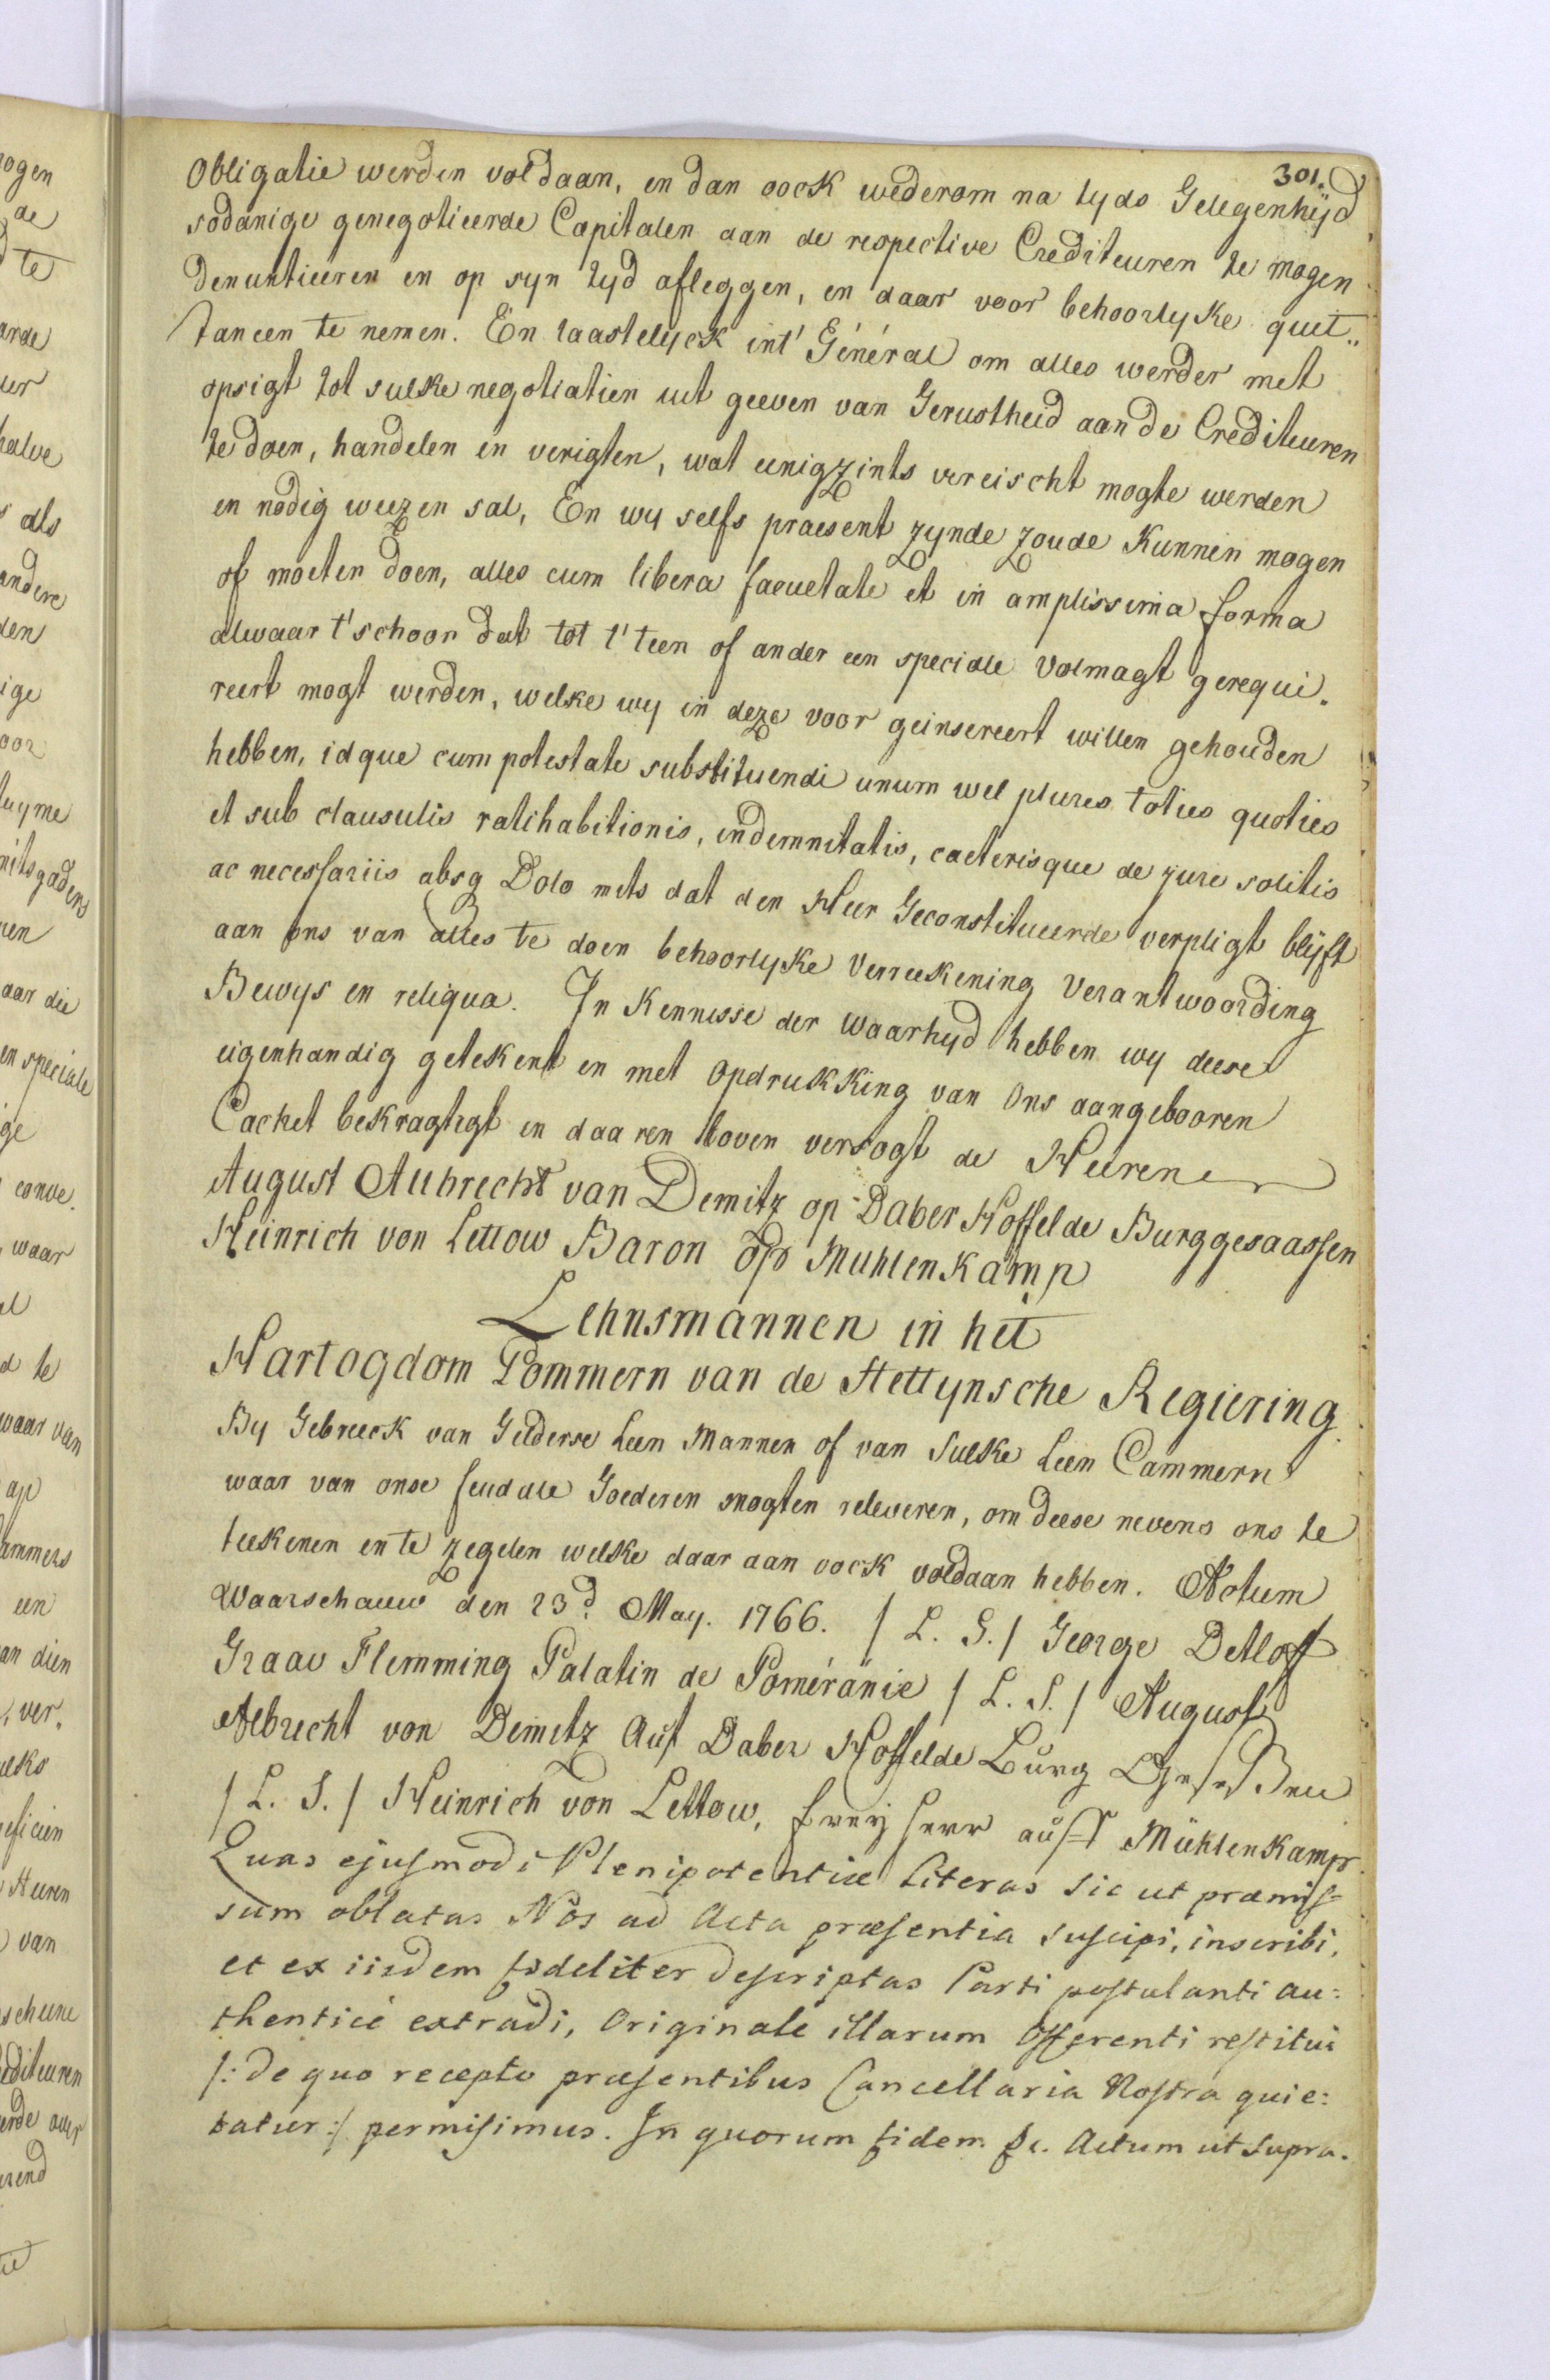 301.
Obligatie werden voldaan, en dan oock wederom na tyds Gelegenhÿd
sodanige genegotieerde Capitalen aan de respective Crediteuren te mogen
denuntieeren en op syn tyd afleggen, en daar voor behoorlyke quit„
tancen te nemen. En laastelyck int' Général om alles werder met
opsigt tot sulke negotiatien uit geeven van Gerustheid aan de Crediteuren
te doen, handelen en verigten, wat eenigzints vereischt mogte werden
en nodig weezen sal, En wy selfs praesent zynde zoude Kunnen mogen
of moeten doen, alles cum libera facultate et in amplissima forma
alwaar t'schoon dat tot t'teen of ander een speciale volmagt gerequi„
reert mogt werden, welke wy in deze voor geinsereert willen gehouden
hebben, idque cum potestate substituendi unum wel plures toties quoties
et sub clausulis ratihabitionis, indemnitatis, caeterisque de jure solitis
ac necessariis absq Dolo mits dat den Heer Geconstitueerde verpligt blÿft
aan ons van alles te doen behoorlyke Verreekening Verantwoording
Bewys en reliqua. In Kennisse der Waarhyd hebben wy deese
eigenhandig getekent en met Opdrukking van Ons aangebooren
Cachet bekragtigt en daaren boven versogt de Heeren
August Albrecht van Demitz op Daber Hoffelde Burggesaassen
Heinrich von Lettow Baron op Muhlenkamp
Lehnsmannen in het
Hartogdom Pommern van de Stettynsche Regiering
By Gebreeck van Gelderse Leen Mannen of van Sulke Leen Cammern
waar van onse feudale Goederen mogten releveren, om deese nevens ons te
teekenen en te zegelen welke daar aan oock voldaan hebben. Actum
Waarschauw den 23d. May. 1766. / L. S. / George Detloff
Graav Flemming Palatin de Poméranie / L. S. / August
Albrecht von Demitz Auf Daber Hoffelde Burg Geseßen
/ L. S. / Heinrich von Lettow, Freyherr auff Mühlenkamp
Quas ejusmodi Plenipotentiæ Literas Sic ut præmis=
sum oblatas Nos ad Acta præsentia suscipi, inscribi,
et ex iisdem fideliter descriptas Parti postulanti au=
thenticè extradi, Originale illarum Offerenti restitui
/: De quo recepto præsentibus Cancellaria Nostra quie=
tatur :/ permisimus. In quorum fidem &c. Actum ut Supra.